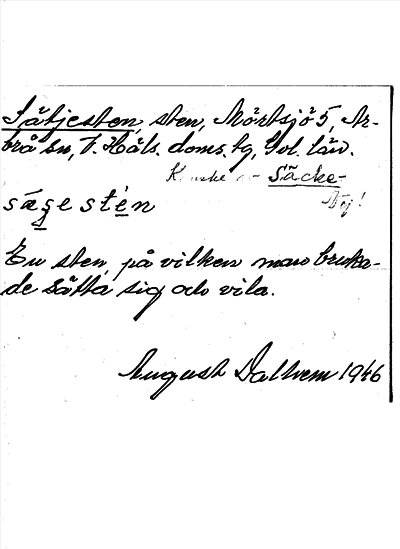 Sätjesten, sten, Mörtsjö 5, Ar-
brå sn, V. Häls. doms. tg, Gvl. län.
Kanske av Säcke-
Nej!
sæges tén
En sten, på vilken man bruka-
de sätta sig och vila.
August Dalhem 1946